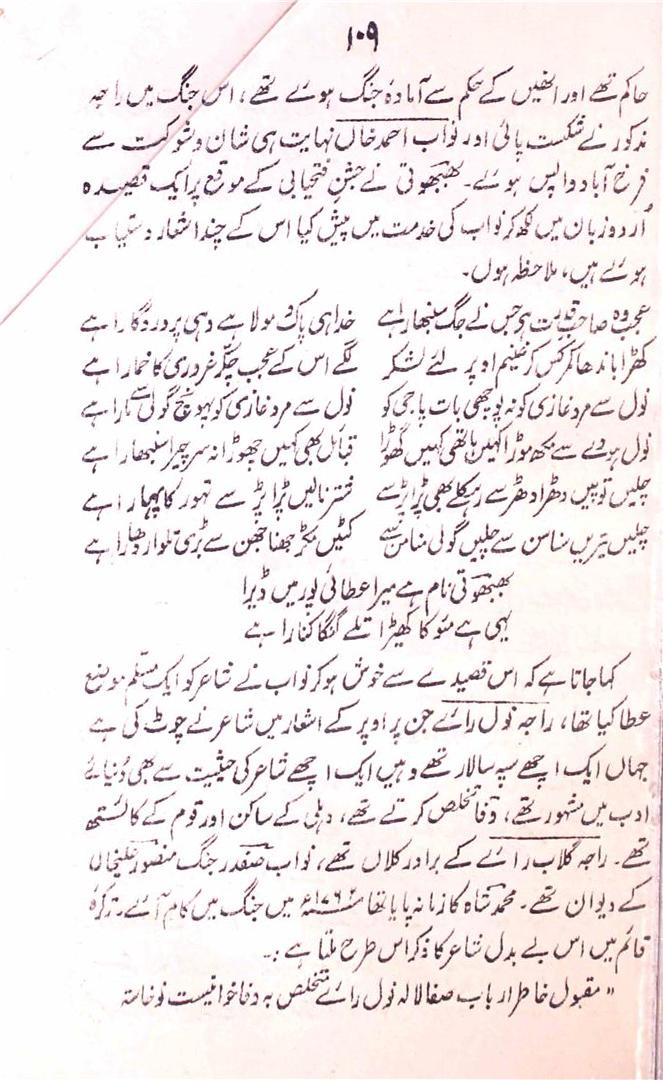 ۱۰۹
حاکم تھے اور انھیں کے حکم سے آمادۂ جنگ ہوئے تھے، اس جنگ میں راجہ
مذکور نے شکست پائی اور نواب احمد خاں نہایت ہی شان و شوکت سے
فرخ آباد واپس ہوئے۔ بھبھوتی نے جشنِ فتحیابی کے موقع پر ایک قصیدہ
اُردو زبان میں لکھ کر نواب کی خدمت میں پیش کیا اس کے چند اشعار دستیاب
ہوئے ہیں، ملاحظہ ہوں۔
عجب وہ صاحب قدرت ہی جس نے جگ سنبھارا ہے خدا ہی پاک مولا ہے وہی پروردگارا ہے
کھڑا باندھا کمر کس کر غنیم اوپر لئے لشکر لگے اس کے عجب چکر غروری کا خمارا ہے
نول سے مرد غازی کو نہ پوچھی بات پاجی کو نول سے مرد غازی کو پہونچ گولی سے مارا ہے
نول ہودے سے مکھ موڑا کہیں ہاتھی کہیں گھوڑا قبائل بھی کہیں چھوڑا نہ سر چیرا سنبھارا ہے
چلیں توپیں دھڑا دھڑ سے رہکلے بھی پڑاپڑ سے شترنالیں تڑاپڑ سے تہور کا پہارا ہے
چلیں تیریں سناسن سے چلیں گولی مناسن سے کٹیں بکتر جھنا جھن سے بڑی تلوار دھارا ہے
بھبھوتی نام ہے میرا عطائی پور میں ڈیرا
یہی ہے مئو کا کھیڑا تلے گنگا کنارا ہے
کہا جاتا ہے کہ اس قصیدے سے خوش ہو کر نواب نے شاعر کو ایک مسلم موضع
عطا کیا تھا، راجہ نول رائے جن پر اوپر کے اشعار میں شاعر نے چوٹ کی ہے
جہاں ایک اچھے سپہ سالار تھے وہیں ایک اچھے شاعر کی حیثیت سے بھی دُنیائے
ادب میں مشہور تھے، وفا تخلص کرتے تھے، دہلی کے ساکن اور قوم کے کائستھ
تھے۔ راجہ گلاب رائے کے برادر کلاں تھے، نواب صفدر جنگ منصور علیخاں
کے دیوان تھے۔ محمد شاہ کا زمانہ پایا تھا میں جنگ میں کام آئے۔ تذکرۂ
قائم میں اس بے بدل شاعر کا ذکر اس طرح ملتا ہے:۔
" مقبول خاطر ارباب صفا لالہ نول رائے متخلص بہ وفا جوانیست نوخاستہ